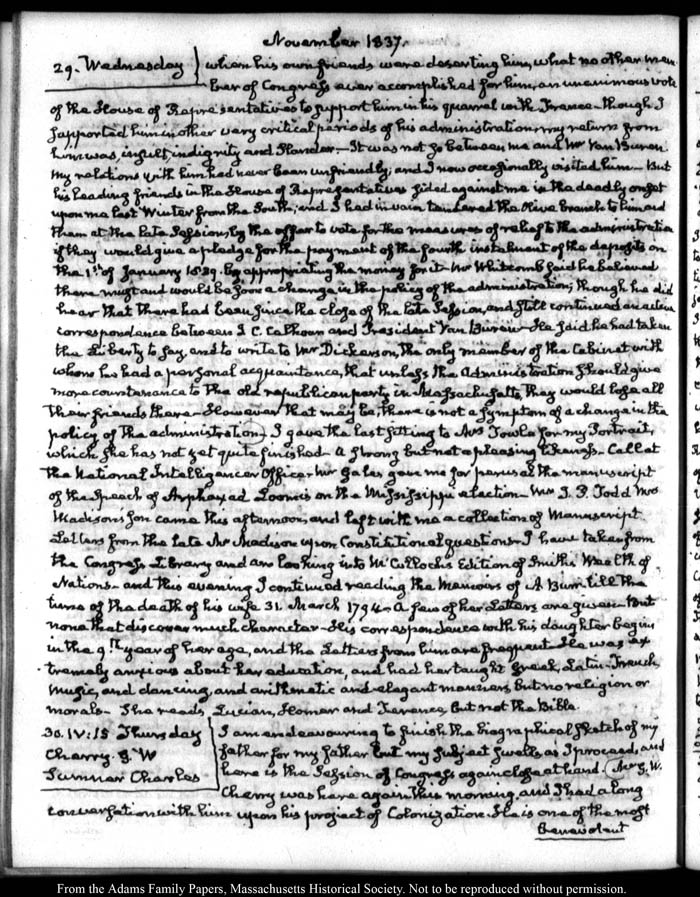 November 1837.
29. Wednesday } when his own friends were deserting him, what no other mem-
ber of Congress ever accomplished for him, an unanimous vote
of the House of Representatives to support him in his quarrel with France — though I
supported him in other very critical periods of his administration, my return from
him was, insult, indignity and slander — It was not so between me and Mr Van Buren
My relations with him had never been unfriendly; and I now occasionally visited him — But
his leading friends in the House of Representatives sided against me in the deadly onset
upon me last Winter from the South; and I had in vain tendered the Olive branch to him and
them at the late Session, by the offer to vote for the measures of relief to the administration
if they would give a pledge for the payment of the fourth instalment of the deposits on
the 1st of January 1839. by appropriating the money for it — Mr Whitcomb said he believed
there must and would be soon a change in the policy of the administration; though he did
hear that there had been since the close of the late Session, and still continued an active
correspondence between J. C. Calhoun and President Van Buren — He said he had taken
the Liberty to say, and to write to Mr Dickerson, the only member of the Cabinet with
whom he had a personal acquaintance, that unless the Administration should give
more countenance to the old republican party in Massachusetts, they would lose all
their friends there — However that may be, there is not a symptom of a change in the
policy of the administration — I gave the last sitting to Mrs Towle for my Portrait,
which she has not yet quite finished — A strong but not a pleasing likeness — Call at
the National Intelligencer Office — Mr Gales gave me for perusal the manuscript
of the Speech of Arphaxad Loomis on the Mississippi election — Mr J. P. Todd Mrs
Madison's son came this afternoon, and left with me a collection of Manuscript
Letters from the late Mr Madison upon Constitutional questions — I have taken from
the Congress Library and am looking into McCulloch's Edition of Smith's Wealth of
Nations — and this evening I continued reading the Memoirs of A Burr till the
time of the death of his wife 31. March 1794 — A few of her Letters are given — But
none that discover much character — His correspondence with his daughter begins
in the 9th year of her age, and the Letters from him are frequent — He was ex-
tremely anxious about her education, and had her taught Greek, Latin, French
Music, and dancing, and arithmetic and elegant manners, but no religion or
morals — She reads, Lucian, Homer and Terence, but not the Bible.
30. IV:15 Thursday
Cherry. G. W
Sumner Charles
I am endeavouring to finish the biographical sketch of my
father for my father but my subject swells as I proceed, and
here is the Session of Congress again close at hand. Mr G. W.
Cherry was here again this morning, and I had a long
conversation with him upon his project of Colonization. He is one of the most
benevolent
From the Adams Family Papers, Massachusetts Historical Society. Not to be reproduced without permission.